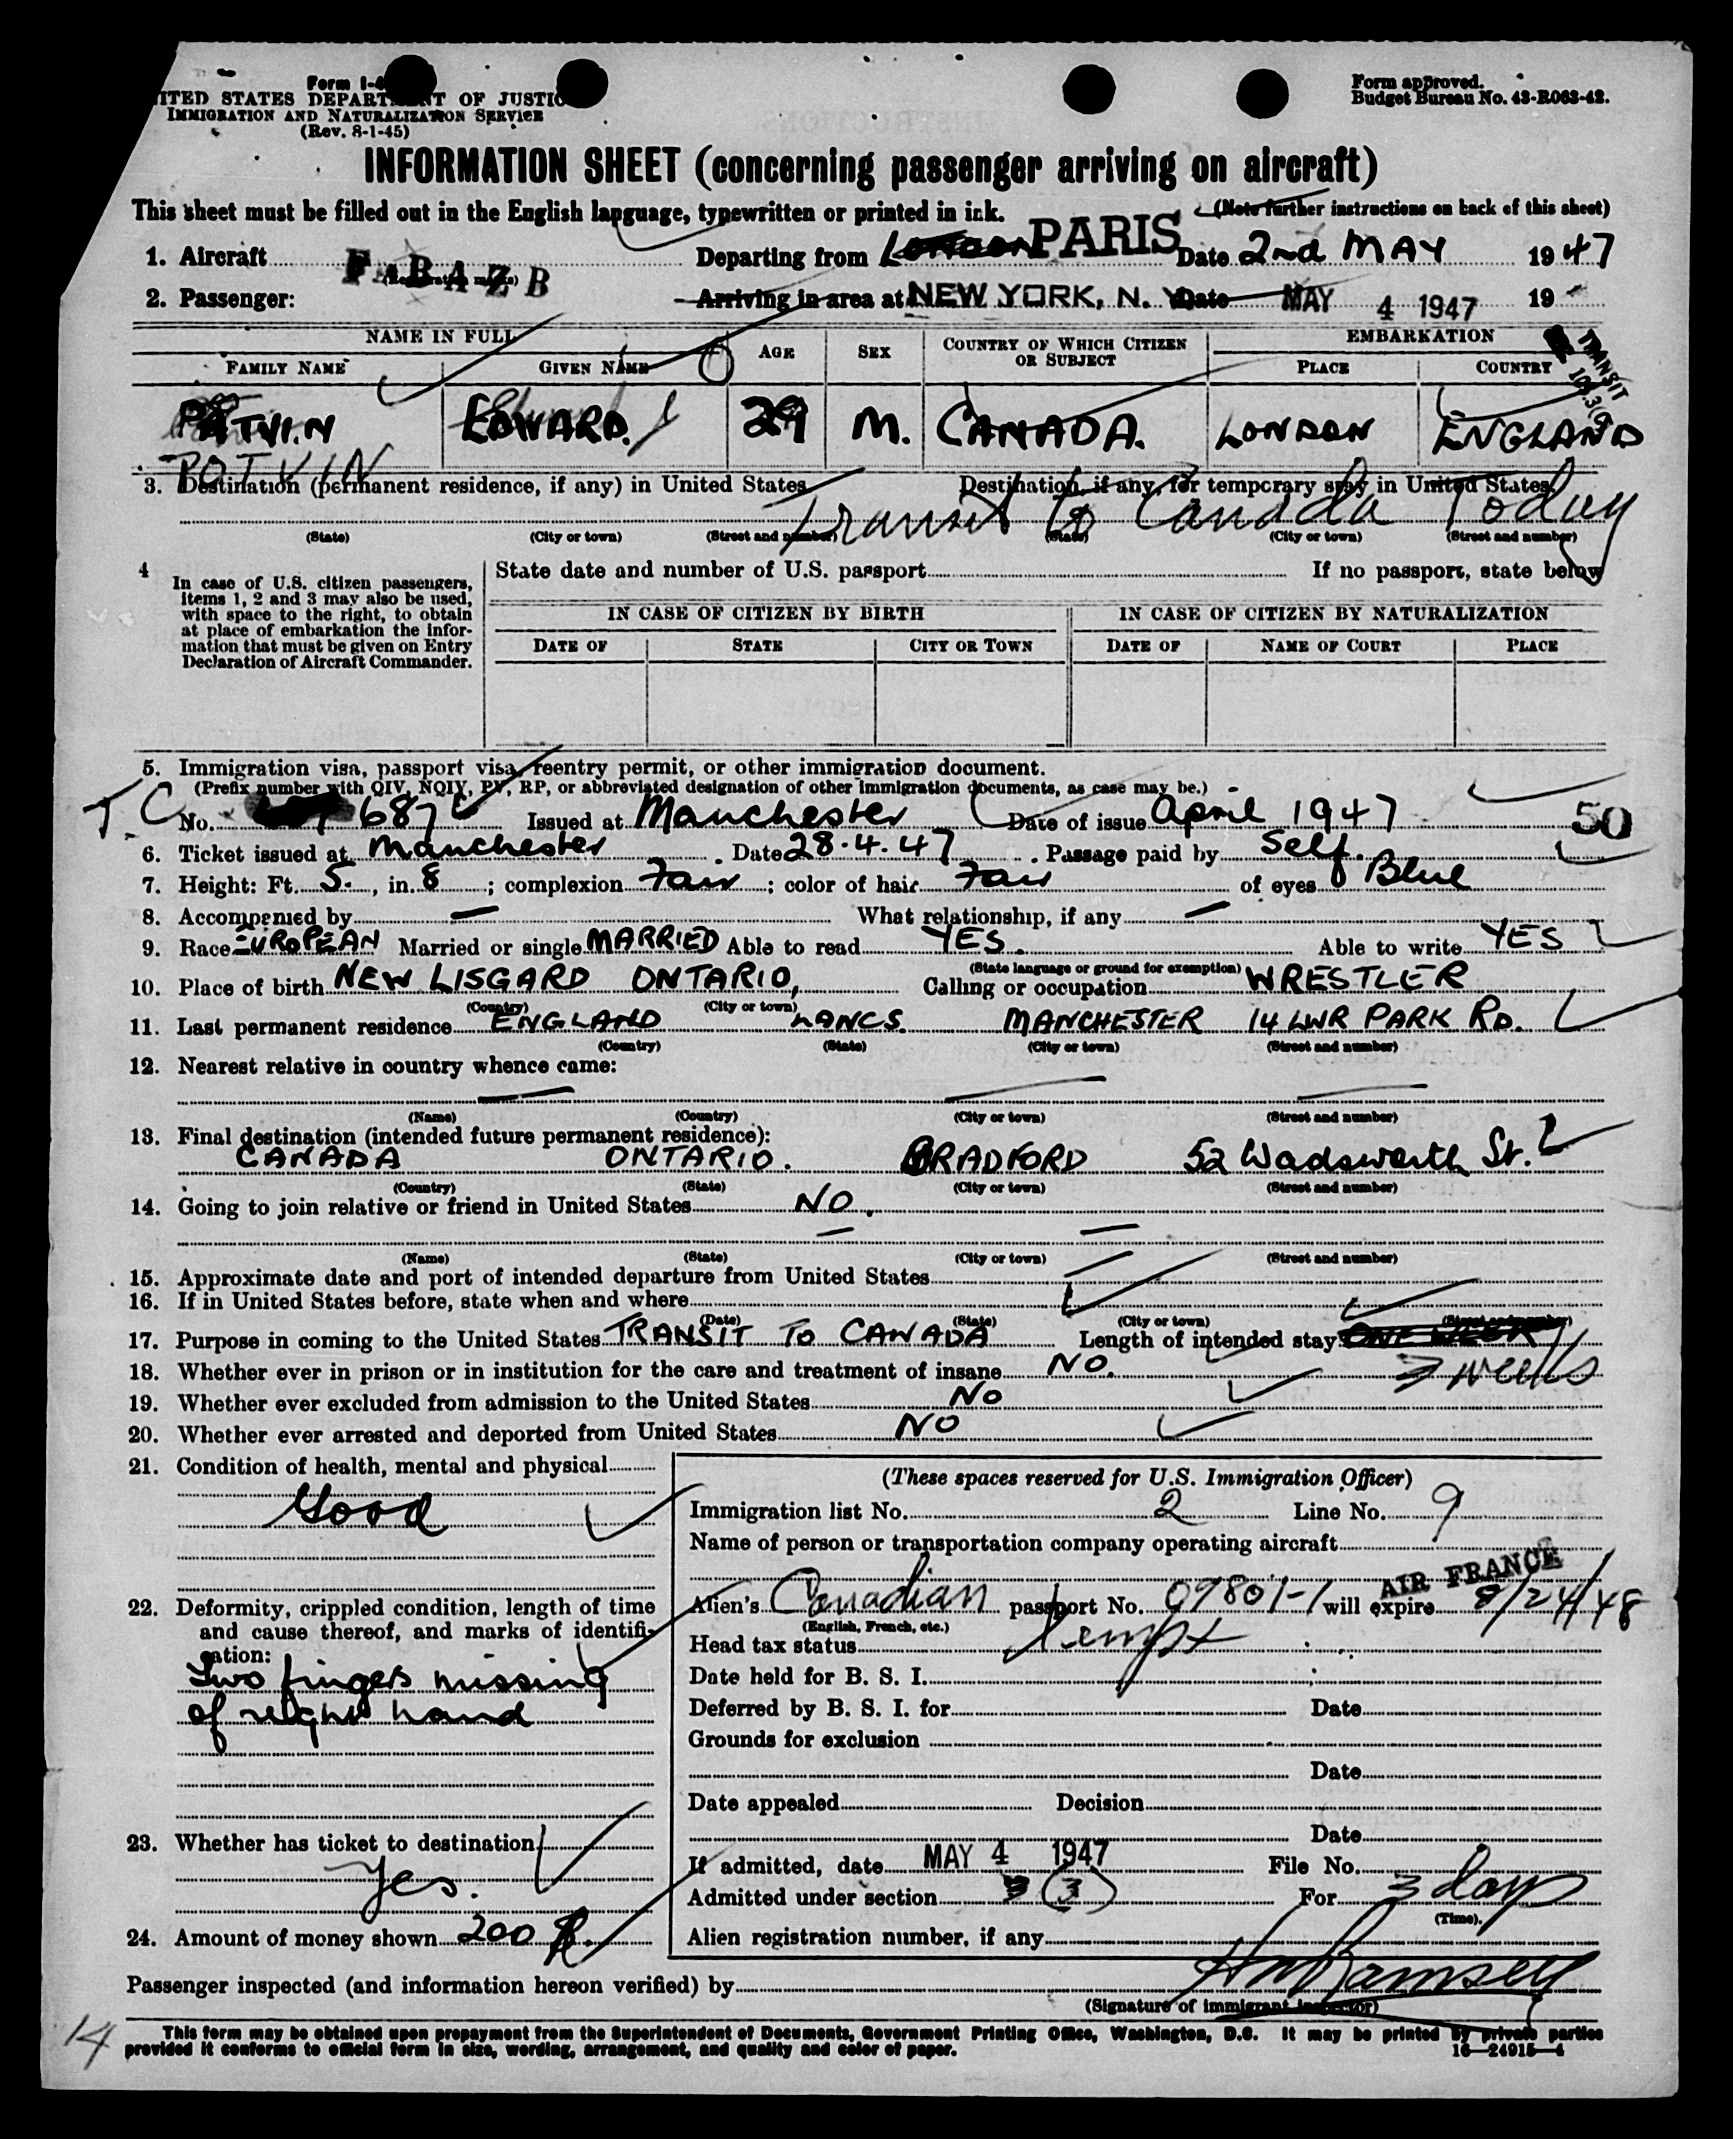 Form I-4
UNITED STATES DEPARTMENT OF JUSTICE
IMMIGRATION AND NATURALIZATION SERVICE
(Rev. 8-1-45)
Form approved.
Budget Bureau No. 43-R063-42.
INFORMATION SHEET (concerning passenger arriving on aircraft)
This sheet must be filled out in the English language, typewritten or printed in ink.
(Note further instructions on back of this sheet)
1. Aircraft F BAZB Departing from LONDON PARIS Date 2nd MAY 1947
(Registration marks)
2. Passenger: Arriving in area at NEW YORK, N. Y. Date MAY 4 1947 19
NAME IN FULL AGE SEX COUNTRY OF WHICH CITIZEN OR SUBJECT EMBARKATION
FAMILY NAME GIVEN NAME PLACE COUNTRY
TRANSIT
PATVIN EDWARD. 29 M. CANADA. LONDON ENGLAND
POTVIN
3. Destination (permanent residence, if any) in United States Destination, if any, for temporary stay in United States
Transit to Canada Today
(State) (City or town) (Street and number) (State) (City or town) (Street and number)
4 In case of U.S. citizen passengers,
items 1, 2 and 3 may also be used,
with space to the right, to obtain
at place of embarkation the infor-
mation that must be given on Entry
Declaration of Aircraft Commander.
State date and number of U.S. passport If no passport, state below
IN CASE OF CITIZEN BY BIRTH IN CASE OF CITIZEN BY NATURALIZATION
DATE OF STATE CITY OR TOWN DATE OF NAME OF COURT PLACE
5. Immigration visa, passport visa, reentry permit, or other immigration document.
(Prefix number with QIV, NQIV, PV, RP, or abbreviated designation of other immigration documents, as case may be.)
T.C No. 687 Issued at Manchester Date of issue April 1947 50
6. Ticket issued at Manchester Date 28.4.47 Passage paid by Self.
7. Height: Ft. 5., in. 8; complexion Fair; color of hair Fair of eyes Blue
8. Accompanied by — What relationship, if any —
9. Race EUROPEAN Married or single MARRIED Able to read YES. Able to write YES
(State language or ground for exemption)
10. Place of birth NEW LISGARD ONTARIO, Calling or occupation WRESTLER
(Country) (City or town)
11. Last permanent residence ENGLAND LANCS. MANCHESTER 14 LWR PARK RD.
(Country) (State) (City or town) (Street and number)
12. Nearest relative in country whence came:
— — —
(Name) (Country) (City or town) (Street and number)
13. Final destination (intended future permanent residence):
CANADA ONTARIO. BRADFORD 52 Wadsworth St.
(Country) (State) (City or town) (Street and number)
14. Going to join relative or friend in United States NO.
— —
(Name) (State) (City or town) (Street and number)
15. Approximate date and port of intended departure from United States —
16. If in United States before, state when and where
(Date) (State) (City or town) (Street and number)
17. Purpose in coming to the United States TRANSIT TO CANADA Length of intended stay ONE WEEK
3 weeks
18. Whether ever in prison or in institution for the care and treatment of insane NO.
19. Whether ever excluded from admission to the United States NO
20. Whether ever arrested and deported from United States NO
21. Condition of health, mental and physical
Good
22. Deformity, crippled condition, length of time
and cause thereof, and marks of identifi-
cation:
Two fingers missing
of right hand
23. Whether has ticket to destination
Yes.
24. Amount of money shown 200
(These spaces reserved for U.S. Immigration Officer)
Immigration list No. 2 Line No. 9
Name of person or transportation company operating aircraft
AIR FRANCE
Alien's Canadian passport No. 09801-1 will expire 8/24/48
(English, French, etc.)
Head tax status Xempt
Date held for B. S. I.
Deferred by B. S. I. for Date
Grounds for exclusion
Date
Date appealed Decision
Date
If admitted, date MAY 4 1947 File No.
Admitted under section 3 (3) For 3 days
(Time).
Alien registration number, if any
Passenger inspected (and information hereon verified) by Ramsey
(Signature of immigrant inspector)
14
This form may be obtained upon prepayment from the Superintendent of Documents, Government Printing Office, Washington, D.C. It may be printed by private parties
provided it conforms to official form in size, wording, arrangement, and quality and color of paper.
16—24915—4